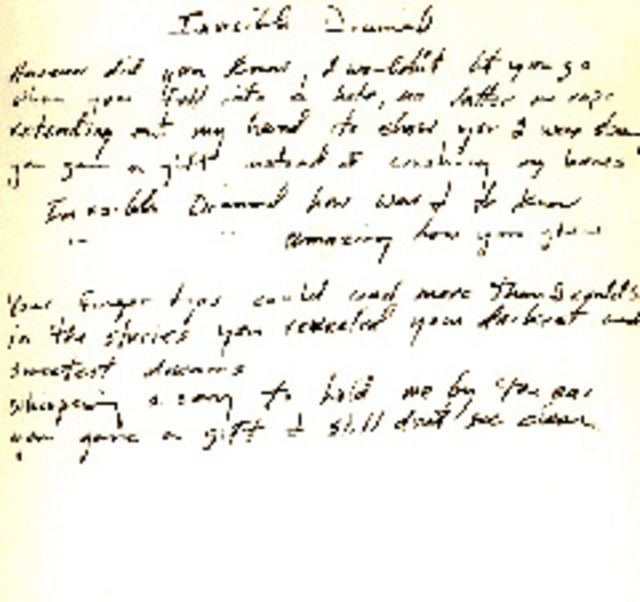 Invisible Diamond
did you know, I wouldn't let you go
when you fell into a hole, no ladder or rope
extending out my hand to show you I was
you gave a gift instead of crushing my bones
Invisible Diamond how was I to know
" " amazing how you glow
Your finger tips could read more than
in the stories you revealed your darkest and
sweetest dreams
whispering a song to hold me by the ear
you gave a gift I still don't see clear